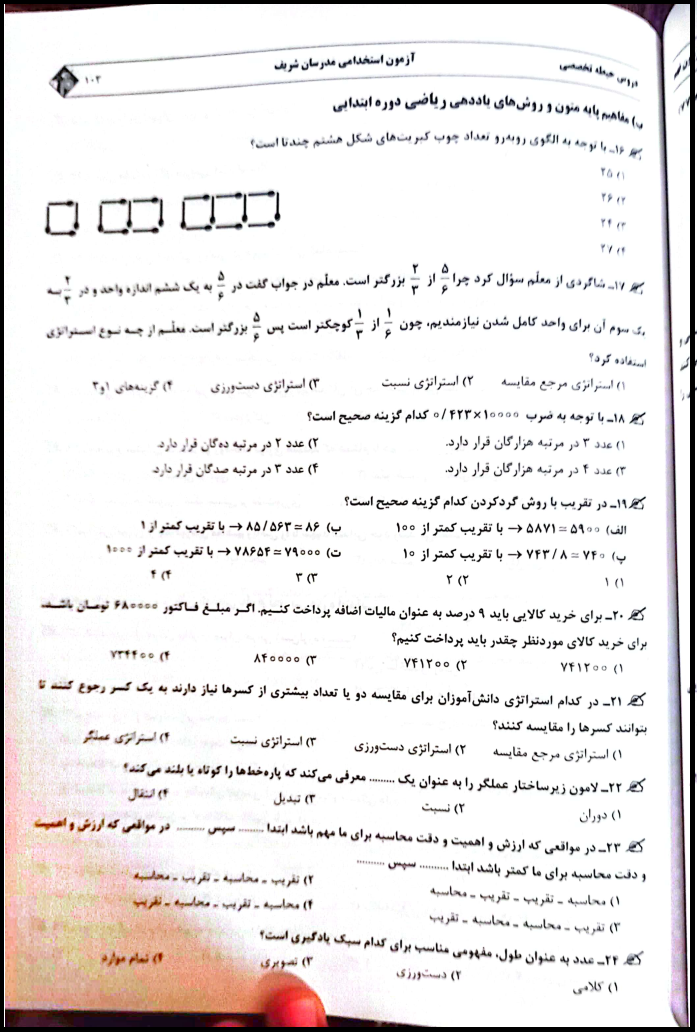 دروس حیطه تخصصی
آزمون استخدامی مدرسان شریف
۱۰۳
ب) مفاهیم پایه متون و روش‌های یاددهی ریاضی دوره ابتدایی
۱۶ـ با توجه به الگوی روبه‌رو تعداد چوب کبریت‌های شکل هشتم چندتا است؟
۱) ۲۵
۲) ۲۶
۳) ۲۴
۴) ۲۷
۱۷ـ شاگردی از معلّم سؤال کرد چرا ۵/۶ از ۲/۳ بزرگتر است. معلّم در جواب گفت در ۵/۶ به یک ششم اندازه واحد و در ۲/۳ به
یک سوم آن برای واحد کامل شدن نیازمندیم، چون ۱/۶ از ۱/۳ کوچکتر است پس ۵/۶ بزرگتر است. معلّم از چه نوع استراتژی
استفاده کرد؟
۱) استراتژی مرجع مقایسه ۲) استراتژی نسبت ۳) استراتژی دست‌ورزی ۴) گزینه‌های ۱و۳
۱۸ـ با توجه به ضرب ۰/۴۲۳×۱۰۰۰۰ کدام گزینه صحیح است؟
۱) عدد ۳ در مرتبه هزارگان قرار دارد. ۲) عدد ۲ در مرتبه ده‌گان قرار دارد.
۳) عدد ۴ در مرتبه هزارگان قرار دارد. ۴) عدد ۳ در مرتبه صدگان قرار دارد.
۱۹ـ در تقریب با روش گردکردن کدام گزینه صحیح است؟
الف) ۵۸۷۱≃۵۹۰۰ → با تقریب کمتر از ۱۰۰ ب) ۸۵/۵۶۳≃۸۶ → با تقریب کمتر از ۱
پ) ۷۴۳/۸≃۷۴۰ → با تقریب کمتر از ۱۰ ت) ۷۸۶۵۴≃۷۹۰۰۰ → با تقریب کمتر از ۱۰۰۰
۱) ۱ ۲) ۲ ۳) ۳ ۴) ۴
۲۰ـ برای خرید کالایی باید ۹ درصد به عنوان مالیات اضافه پرداخت کنیم. اگر مبلغ فاکتور ۶۸۰۰۰۰ تومان باشد،
برای خرید کالای موردنظر چقدر باید پرداخت کنیم؟
۱) ۷۴۱۲۰۰ ۲) ۷۴۱۲۰۰ ۳) ۸۴۰۰۰۰ ۴) ۷۳۴۴۰۰
۲۱ـ در کدام استراتژی دانش‌آموزان برای مقایسه دو یا تعداد بیشتری از کسرها نیاز دارند به یک کسر رجوع کنند تا
بتوانند کسرها را مقایسه کنند؟
۱) استراتژی مرجع مقایسه ۲) استراتژی دست‌ورزی ۳) استراتژی نسبت ۴) استراتژی عملگر
۲۲ـ لامون زیرساختار عملگر را به عنوان یک ......... معرفی می‌کند که پاره‌خط‌ها را کوتاه یا بلند می‌کند؟
۱) دوران ۲) نسبت ۳) تبدیل ۴) انتقال
۲۳ـ در مواقعی که ارزش و اهمیت و دقت محاسبه برای ما مهم باشد ابتدا ......... سپس ......... در مواقعی که ارزش و اهمیت
و دقت محاسبه برای ما کمتر باشد ابتدا ......... سپس .........
۱) محاسبه ـ تقریب ـ تقریب ـ محاسبه ۲) تقریب ـ محاسبه ـ تقریب ـ محاسبه
۳) تقریب ـ محاسبه ـ محاسبه ـ تقریب ۴) محاسبه ـ تقریب ـ محاسبه ـ تقریب
۲۴ـ عدد به عنوان طول، مفهومی مناسب برای کدام سبک یادگیری است؟
۱) کلامی ۲) دست‌ورزی ۳) تصویری ۴) تمام موارد